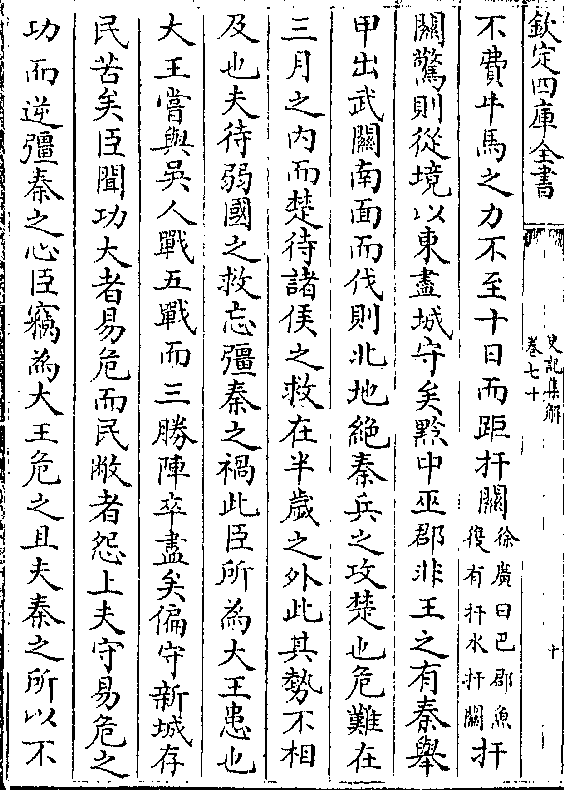 欽定四庫全書
史記集解
卷七十
十
不費牛馬之力不至十日而距扞關徐廣曰巴郡魚復有扞水扞關扞
關驚則從境以東盡城守矣黔中巫郡非王之有秦舉
甲出武關南面而伐則北地絶秦兵之攻楚也危難在
三月之内而楚待諸侯之救在半歲之外此其勢不相
及也夫待弱國之救忘彊秦之禍此臣所為大王患也
大王嘗與吳人戰五戰而三勝陣卒盡矣偏守新城存
民苦矣臣聞功大者易危而民敝者怨上夫守易危之
功而逆彊秦之心臣竊為大王危之且夫秦之所以不